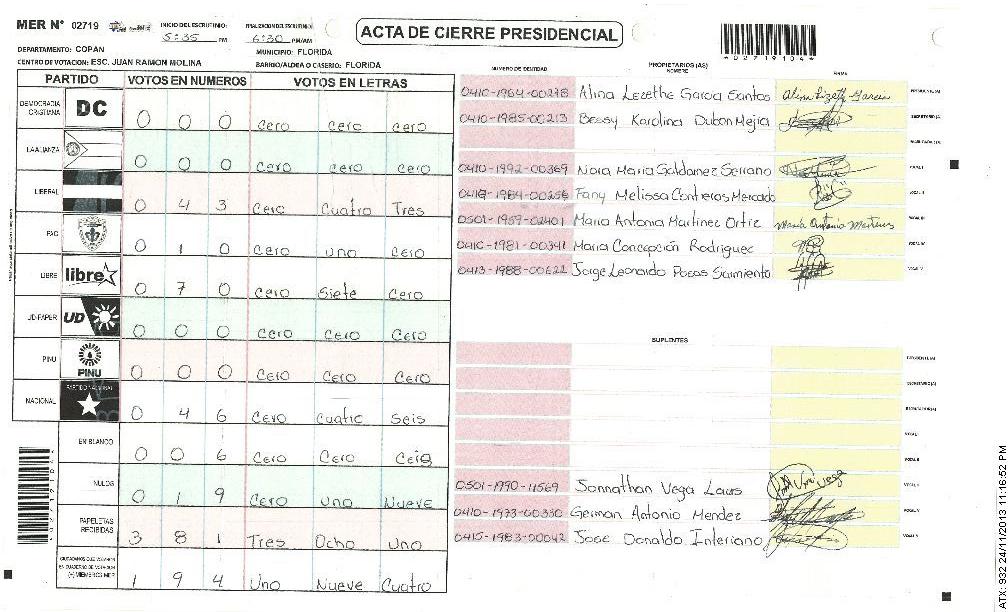 MER N° 02719
INICIO DEL ESCRUTINIO: 5:35 PM
FINALIZACION DEL ESCRUTINIO: 6:30 PM/AM
ACTA DE CIERRE PRESIDENCIAL
*02719104*
DEPARTAMENTO: COPAN
MUNICIPIO: FLORIDA
CENTRO DE VOTACION: ESC. JUAN RAMON MOLINA
BARRIO/ALDEA O CASERIO: FLORIDA
PARTIDO VOTOS EN NUMEROS VOTOS EN LETRAS
DEMOCRACIA CRISTIANA DC 0 0 0 Cero Cero Cero
LA ALIANZA 0 0 0 Cero Cero Cero
LIBERAL 0 4 3 Cero Cuatro Tres
PAC 0 1 0 Cero uno Cero
LIBRE libre 0 7 0 Cero Siete Cero
UD-FAPER UD 0 0 0 Cero Cero Cero
PINU PINU 0 0 0 Cero Cero Cero
NACIONAL PARTIDO NACIONAL 0 4 6 Cero Cuatro Seis
EN BLANCO 0 0 6 Cero Cero
NULOS 0 1 9 Cero Uno Nueve
PAPELETAS RECIBIDAS 3 8 1 Tres Ocho Uno
CIUDADANOS QUE VOTARON EN CUADERNO DE VOTACION (+) MIEMBROS MER 1 9 4 Uno Nueve Cuatro
NUMERO DE IDENTIDAD
PROPIETARIOS (AS)
NOMBRE
FIRMA
0410-1964-00278 Alina Lezethe Garcia Santos Alina Lizeth Garcia PRESIDENTE (A)
0410-1985-00213 Bessy Karolina Dubon Mejia SECRETARIO (A)
ESCRUTADOR (A)
0410-1992-00369 Nora Maria Galdamez Serrano VOCAL I
Fany Melissa Contreras Mercado VOCAL II
0501-1957-02401 Maria Antonia Martinez Ortiz Maria Antonia Martinez VOCAL III
0410-1981-00341 Maria Concepción Rodriguez VOCAL IV
0413-1988-00622 Jorge Leonardo Posas Sarmiento VOCAL V
SUPLENTES
PRESIDENTE (A)
SECRETARIO (A)
ESCRUTADOR (A)
VOCAL I
VOCAL II
0501-1990-11569 Jonnathan Vega VOCAL III
0410-1973-00350 German Antonio Mendez VOCAL IV
0415-1983-00042 Jose Donaldo Interiano VOCAL V
ATX: 932 24/11/2013 11:16:52 PM